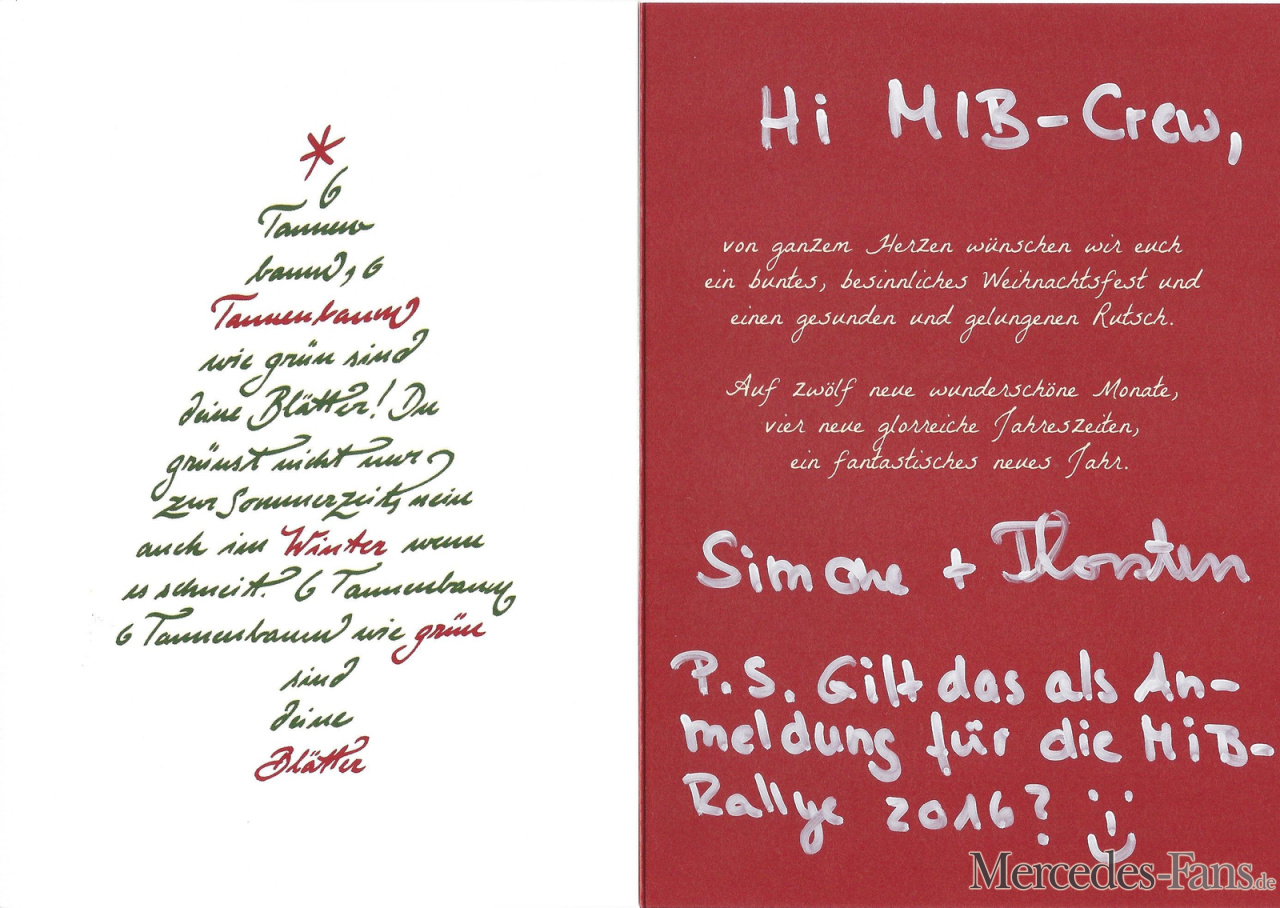 6
Tannen
baum, 6
Tannenbaum
wie grün sind
deine Blätter! Du
grünst nicht nur
zur Sommerzeit, nein
auch im Winter wenn
es schneit. 6 Tannenbaum
6 Tannenbaum wie grün
sind
deine
Blätter
Hi MIB-Crew,
von ganzem Herzen wünschen wir euch
ein buntes, besinnliches Weihnachtsfest und
einen gesunden und gelungenen Rutsch.
Auf zwölf neue wunderschöne Monate,
vier neue glorreiche Jahreszeiten,
ein fantastisches neues Jahr.
Simone + Thorsten
P.S. Gilt das als An-
meldung für die MiB-
Rallye 2016? :)
Mercedes-Fans.de